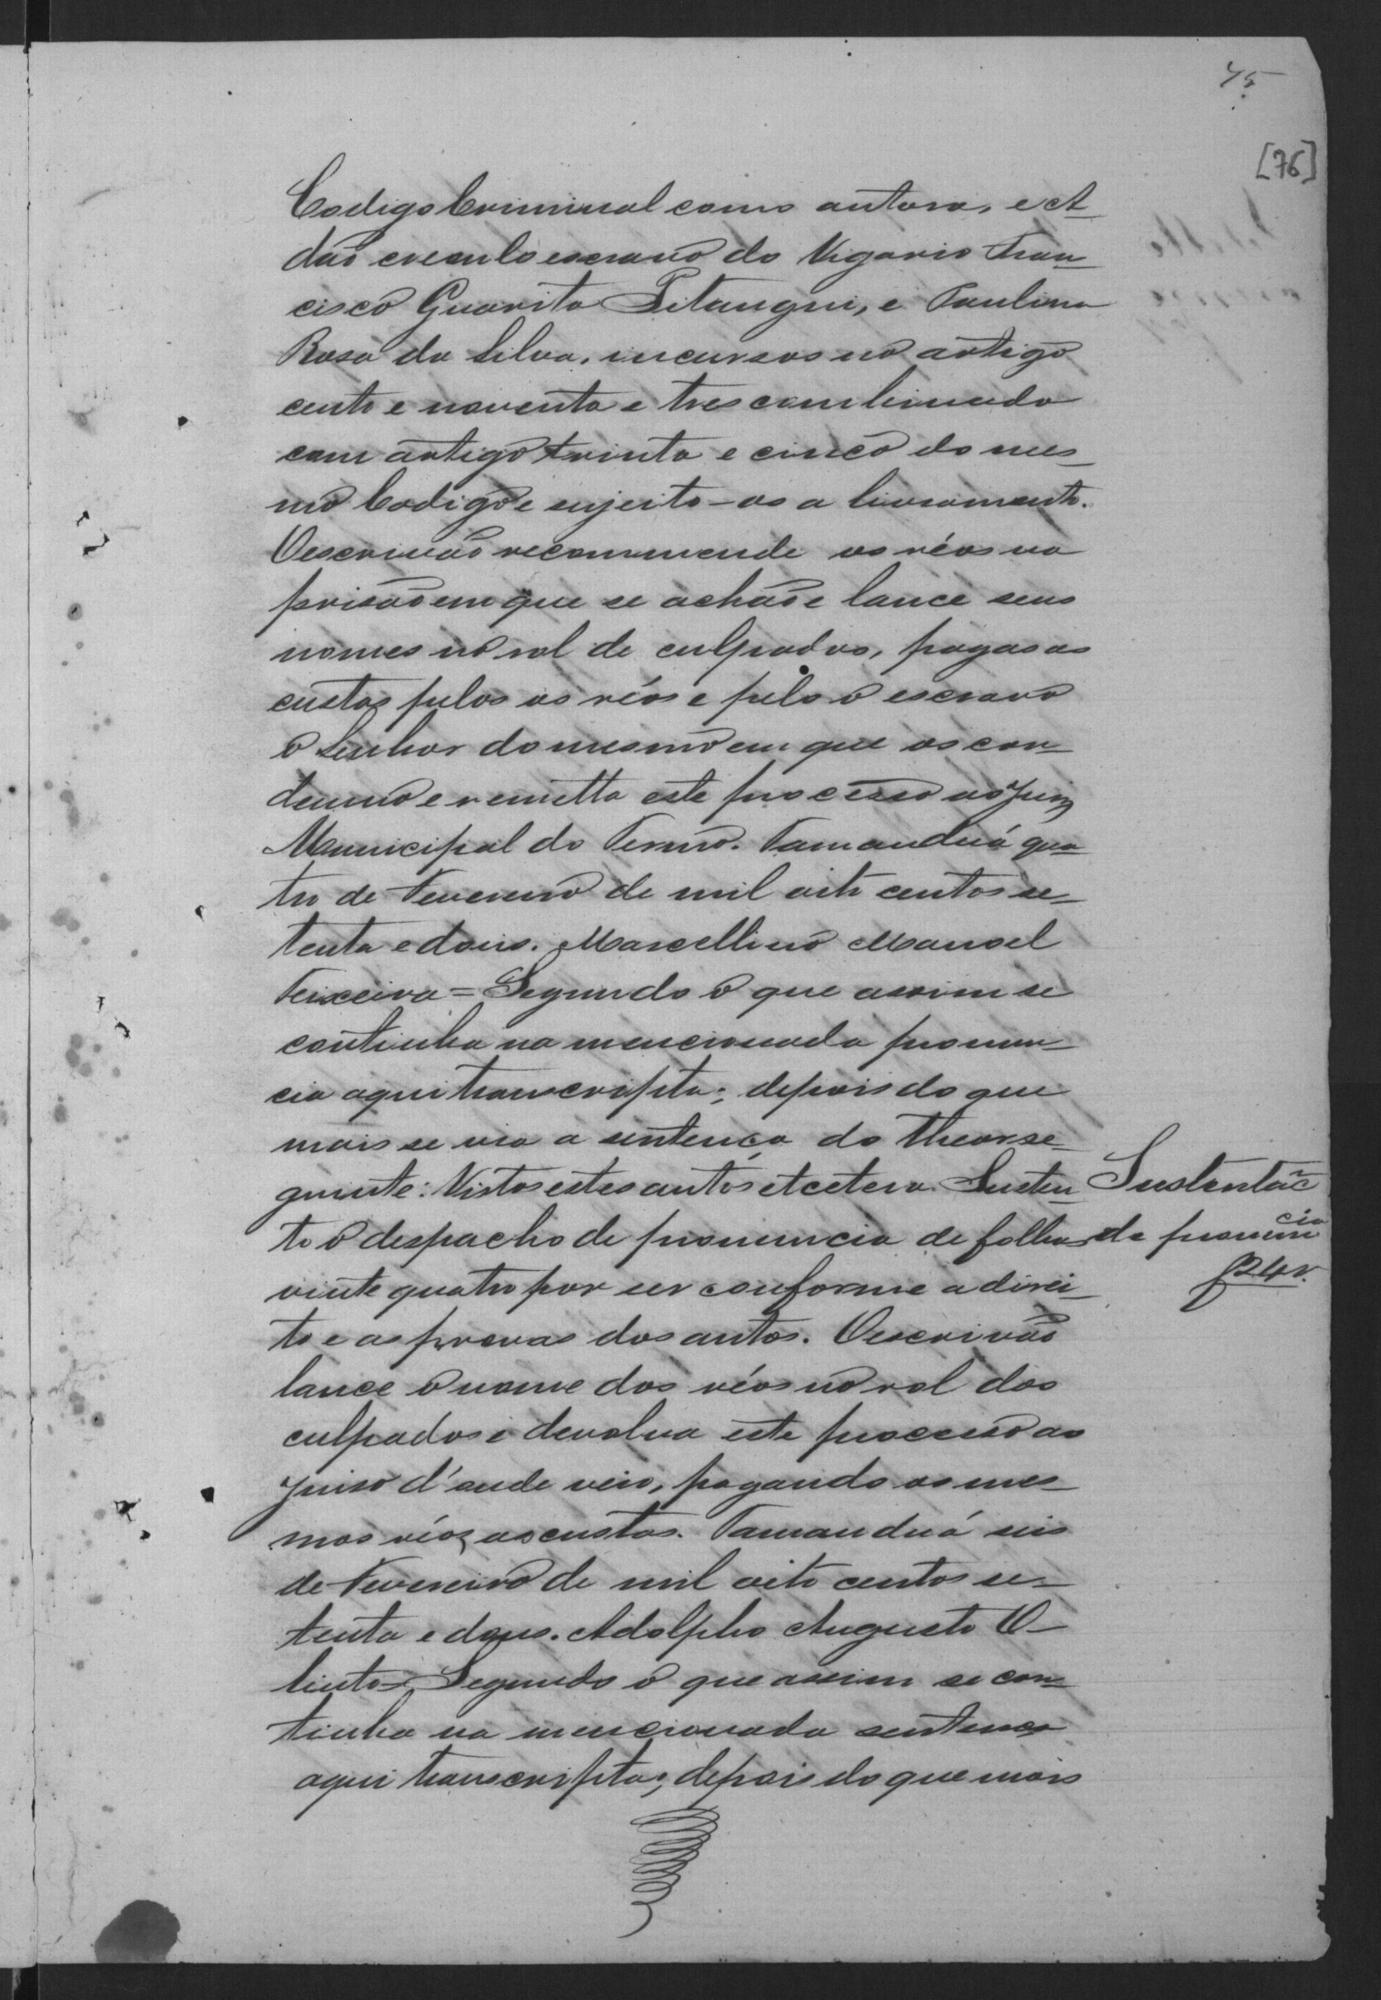 45
[76]
Codigo Criminal como autora, e A-
dão creoulo escravo do Vigario Fran-
cisco Guarita Pitangui, e Paulina
Rosa da Silva, incursos no artigo
cento e noventa e tres combinado
com artigo trinta e cinco do mes-
mo Codigo e sujeito-os a livramento.
O escrivão recommende os réos na
prisão em que se achão e lance seus
nomes no rol de culpados, pagas as
custas pelos os réos e pelo o escravo
o Senhor do mesmo em que os con-
demno e remetta este processo ao Juiz
Municipal do Termo. Tamanduá qua-
tro de Fevereiro de mil oito centos se-
tenta e dous. Marcellino Manoel
Teixeira = Segundo o que assim se
continha na mencionada pronun-
cia aqui transcripta; depois do que
mais se via a sentença do theor se-
guinte: Vistos estes autos etcetera. Susten-
to o despacho de pronuncia de folhas
vinte quatro por ser conforme a direi-
to e as provas dos autos. O escrivão
lance o nome dos réos no rol dos
culpados e devolva este processo ao
Juiso d'onde veio, pagando os mes-
mos réos as custas. Tamanduá seis
de Fevereiro de mil oito centos se-
tenta e dous. Adolpho Augusto O-
linto = Segundo o que assim se con-
tinha na mencionada sentença
aqui transcripta; depois do que mais
Sustentação
da pronuncia
f 24 v.